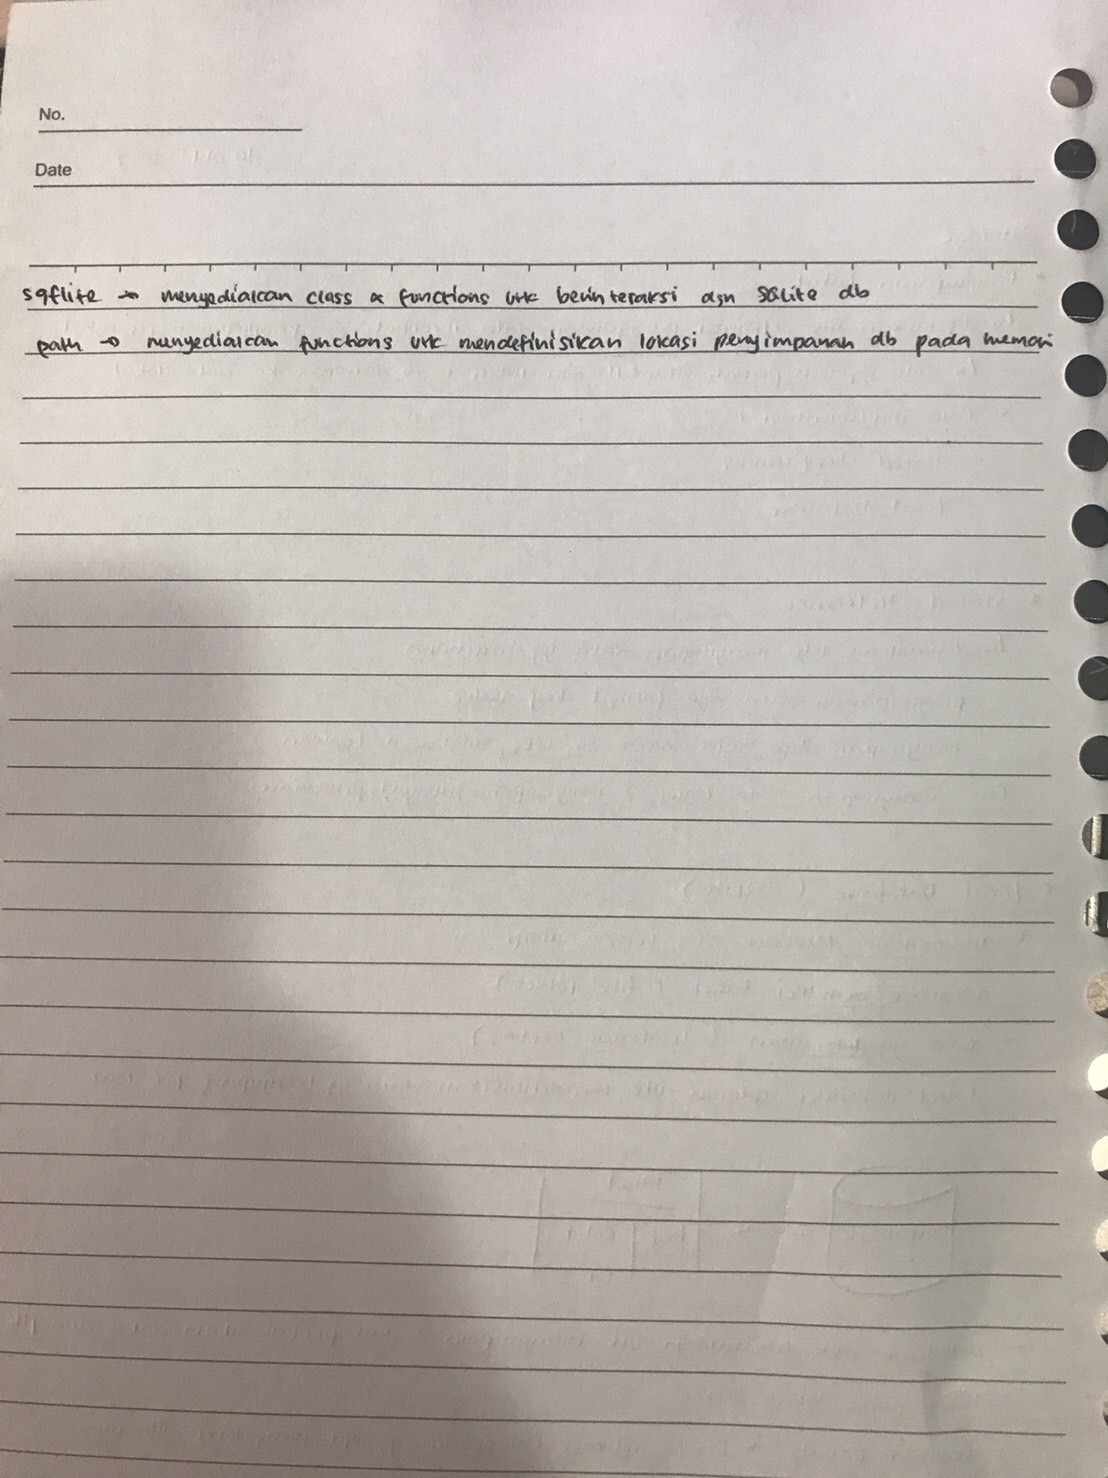 No.
Date
sqflite → menyediakan class & functions utk berinteraksi dgn SQLite db
path → menyediakan functions utk mendefinisikan lokasi penyimpanan db pada memori